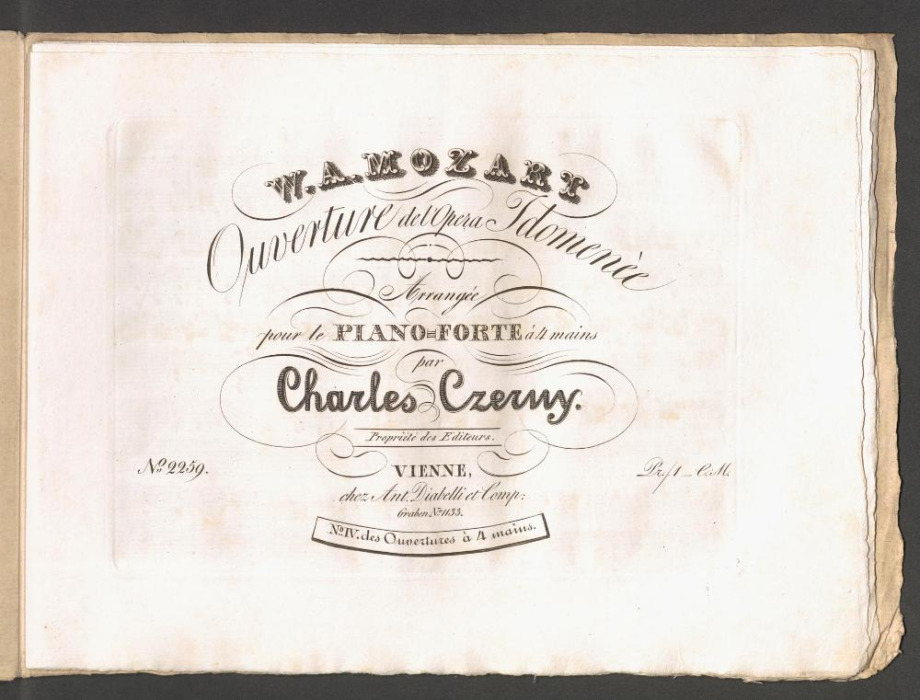 W. A. MOZART
Ouverture del'Opera Idomenée
Arrangée
pour le PIANO=FORTE à 4 mains
par
Charles Czerny.
Propriété des Editeurs.
No. 2259.
VIENNE,
chez Ant. Diabelli et Comp:
Graben No. 1133.
No. IV. des Ouvertures à 4 mains.